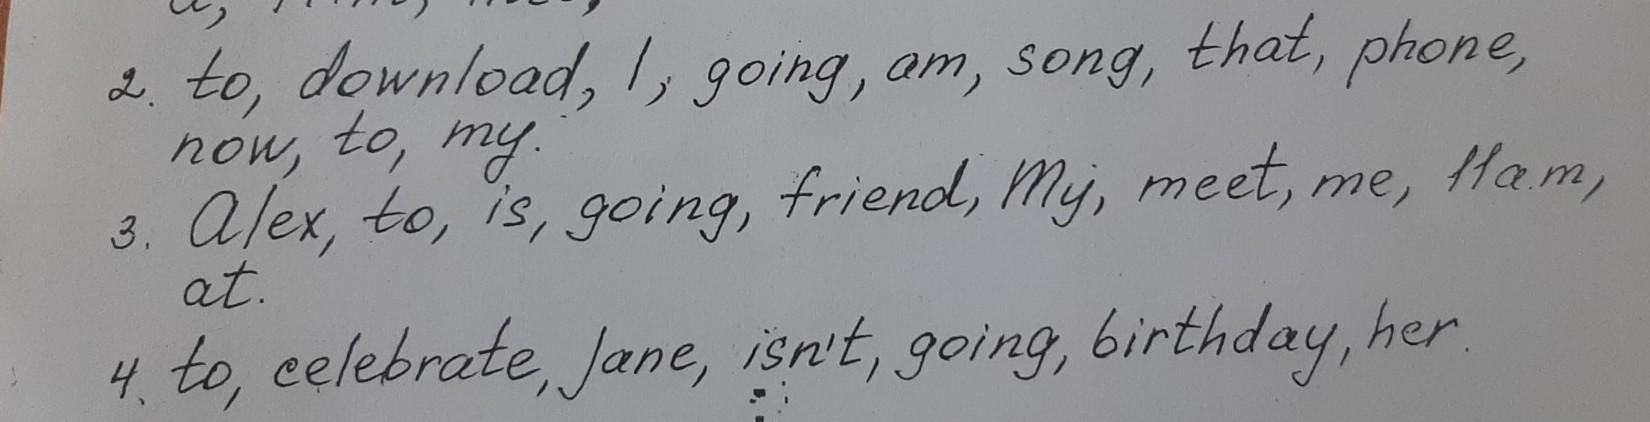 2. to, download, I, going, am, song, that, phone,
now, to, my.
3. Alex, to, is, going, friend, My, meet, me, 11a.m,
at.
4. to, celebrate, Jane, isn't, going, birthday, her.